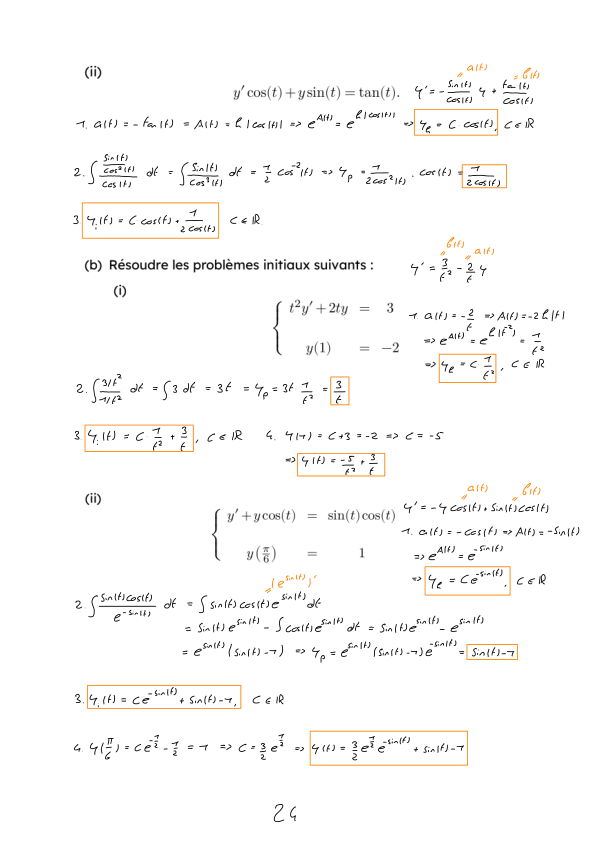 (ii)
y′ cos(t) + y sin(t) = tan(t). y' = - sin(t)/cos(t) y + tan(t)/cos(t)
" a(t) = b(t)
1. a(t) = - tan(t) => A(t) = ln|cos(t)| => e^A(t) = e^ln|cos(t)| => yₕ = C · cos(t), C ∈ ℝ
2. ∫ (sin(t)/cos²(t))/cos(t) dt = ∫ sin(t)/cos³(t) dt = 1/2 cos^-2(t) => yₚ = 1/(2cos²(t)) · cos(t) = 1/(2cos(t))
3. yᵢ(t) = C cos(t) + 1/(2cos(t)) C ∈ ℝ
(b) Résoudre les problèmes initiaux suivants :
" b(t) " a(t)
y' = 3/t² - 2/t y
(i)
t²y′ + 2ty = 3
y(1) = −2
1. a(t) = - 2/t => A(t) = -2 ln|t|
=> e^A(t) = e^ln(t^-2) = 1/t²
=> yₕ = C · 1/t², C ∈ ℝ
2. ∫ (3/t²)/(1/t²) dt = ∫ 3 dt = 3t = yₚ = 3t · 1/t² = 3/t
3. yᵢ(t) = C · 1/t² + 3/t, C ∈ ℝ 4. y(1) = C + 3 = -2 => C = -5
=> y(t) = -5/t² + 3/t
(ii)
y′ + y cos(t) = sin(t) cos(t)
y(π/6) = 1
" a(t) " b(t)
y' = -y cos(t) + sin(t)cos(t)
1. a(t) = -cos(t) => A(t) = -sin(t)
=> e^A(t) = e^-sin(t)
=> yₕ = Ce^-sin(t), C ∈ ℝ
" (e^sin(t))'
2. ∫ sin(t)cos(t)/e^-sin(t) dt = ∫ sin(t)cos(t)e^sin(t) dt
= sin(t)e^sin(t) - ∫ cos(t)e^sin(t) dt = sin(t)e^sin(t) - e^sin(t)
= e^sin(t)(sin(t)-1) => yₚ = e^sin(t)(sin(t)-1)e^-sin(t) = sin(t)-1
3. yᵢ(t) = Ce^-sin(t) + sin(t)-1, C ∈ ℝ
4. y(π/6) = Ce^-1/2 - 1/2 = 1 => C = 3/2 e^1/2 => y(t) = 3/2 e^1/2 e^-sin(t) + sin(t)-1
24